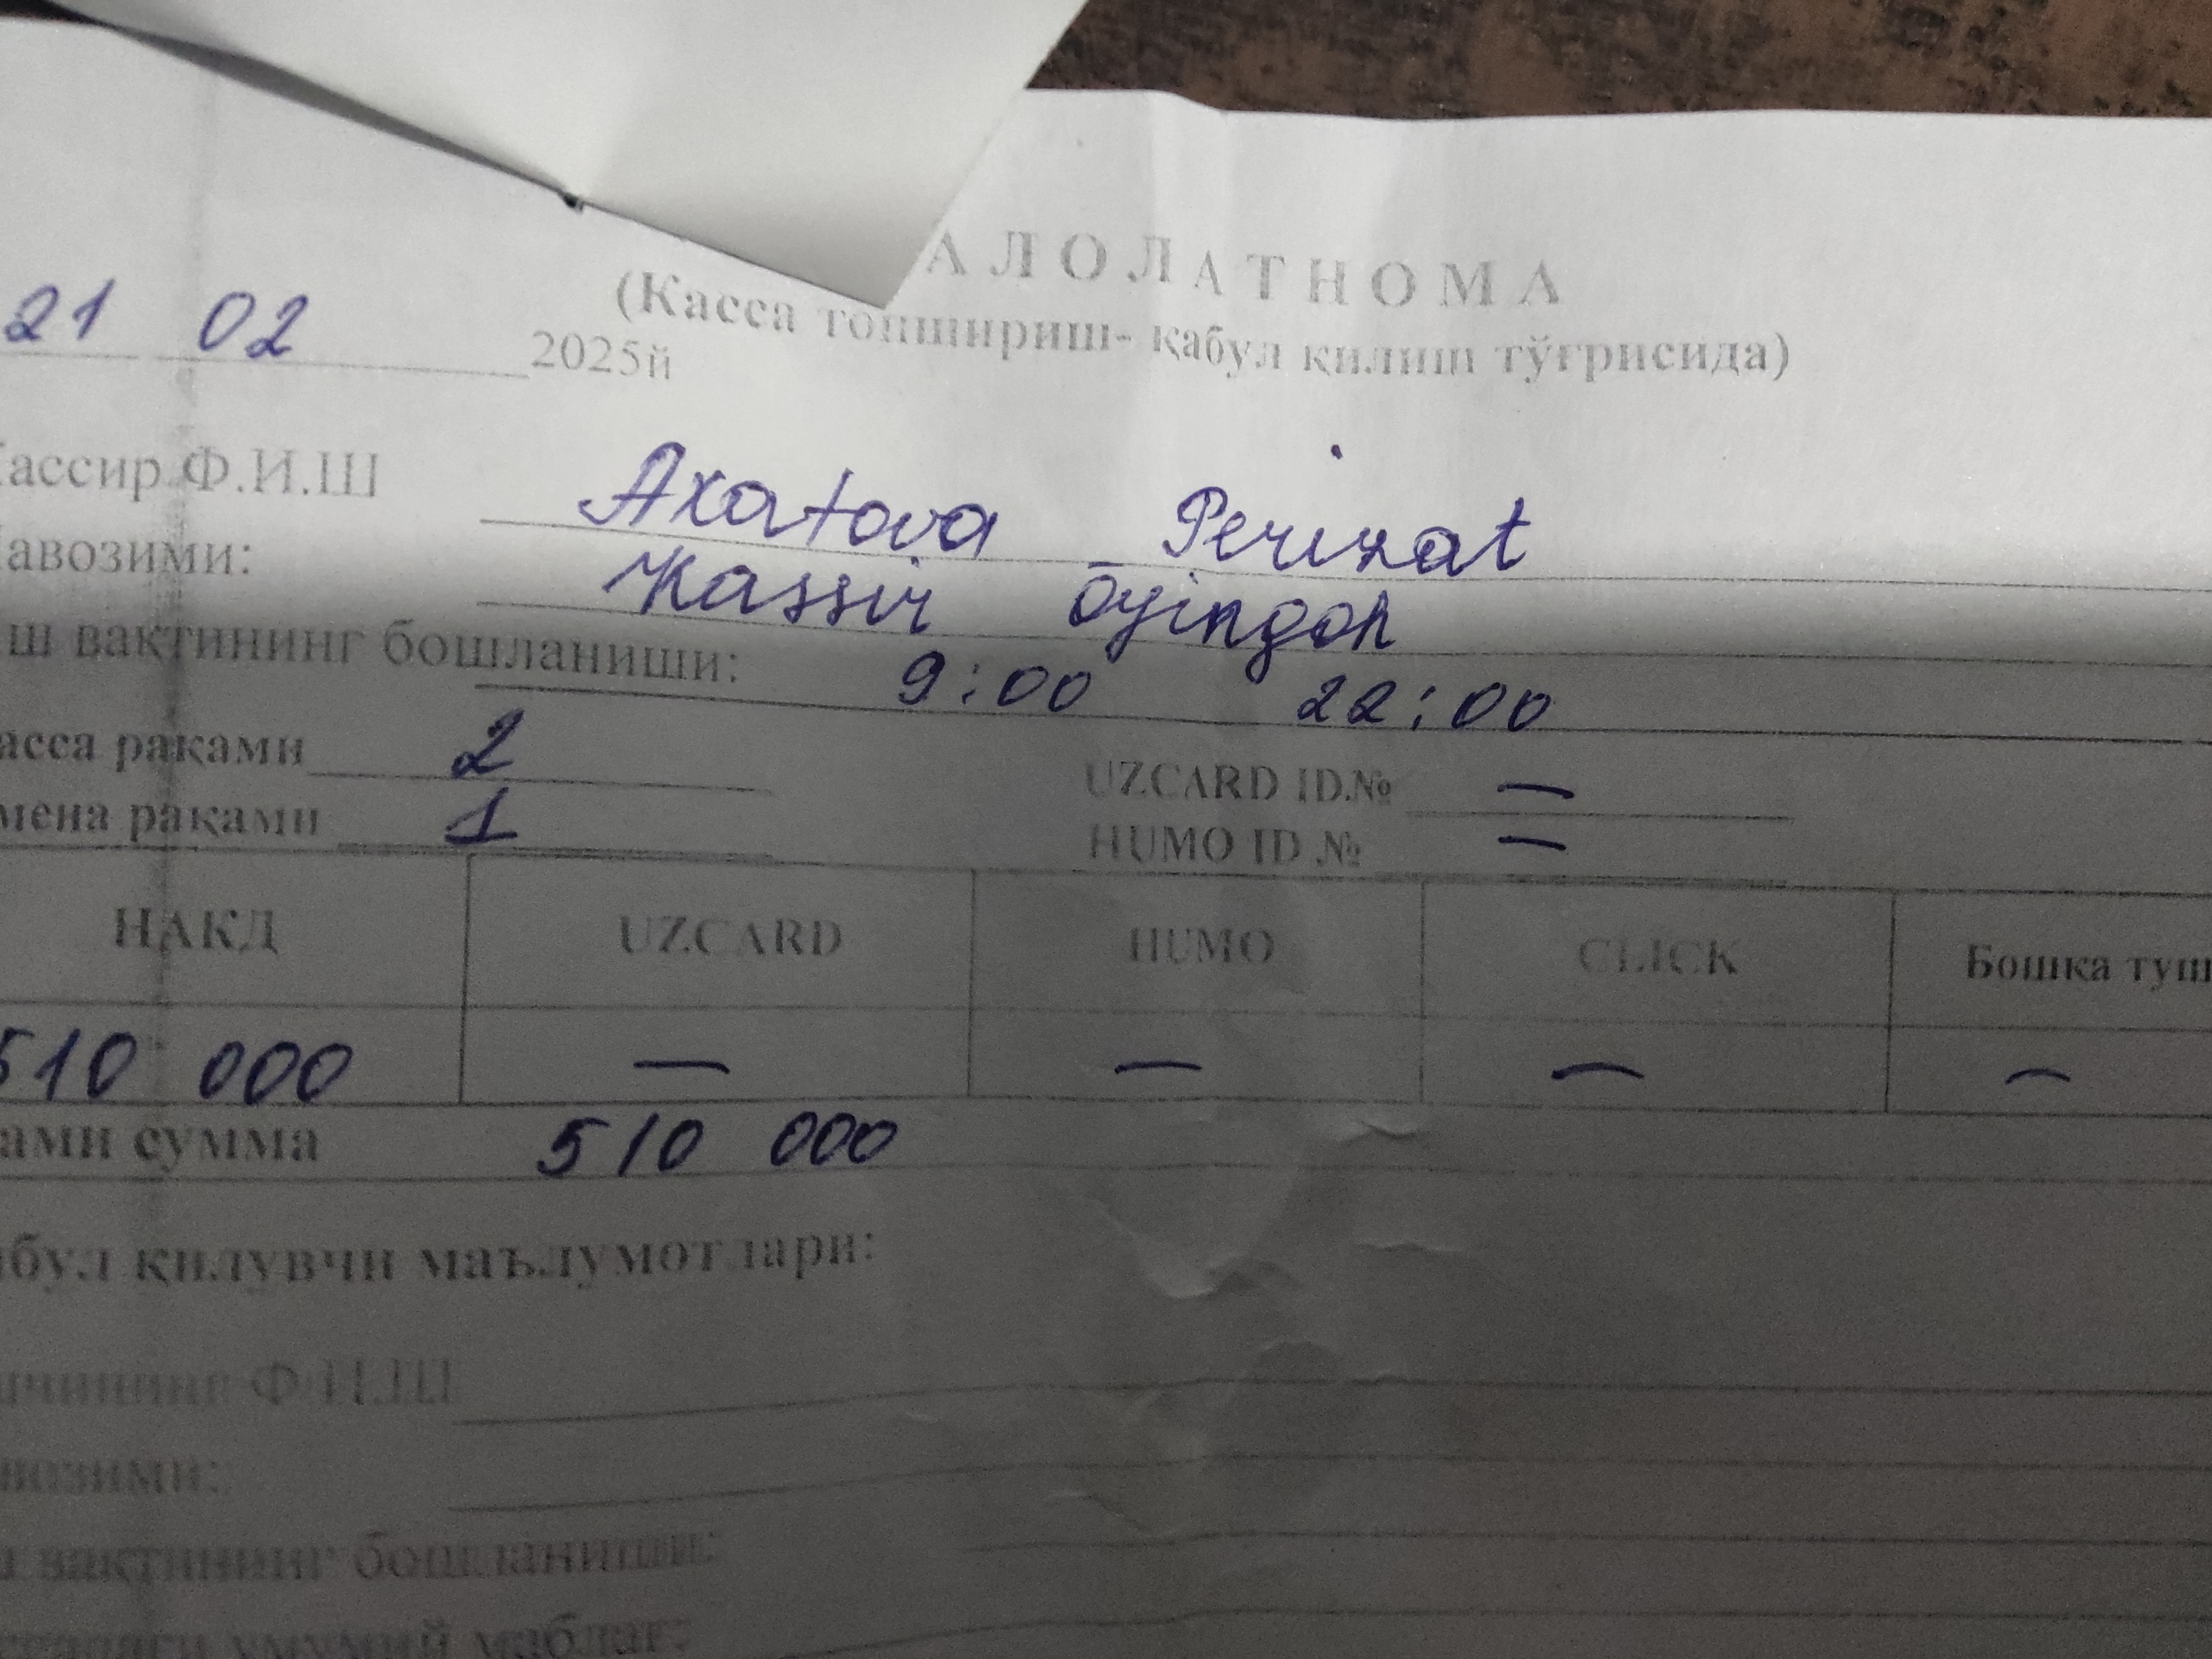 АЛОЛАТНОМА
(Касса топшириш- қабул қилиш тўғрисида)
21 02 2025й
Кассир Ф.И.Ш Axatova Perizat
авозими: Kassir ōyingoh
иш вақтининг бошланиши: 9:00 22:00
асса рақами 2 UZCARD ID.№ —
мена рақами 1 HUMO ID № —
НАКД UZCARD HUMO CLICK Бошка туш
510 000 — — — —
ами сумма 510 000
абул қилувчи маълумотлари:
Ф.И.Ш
возими:
вақтининг бошланиши:
умумий маблағ: